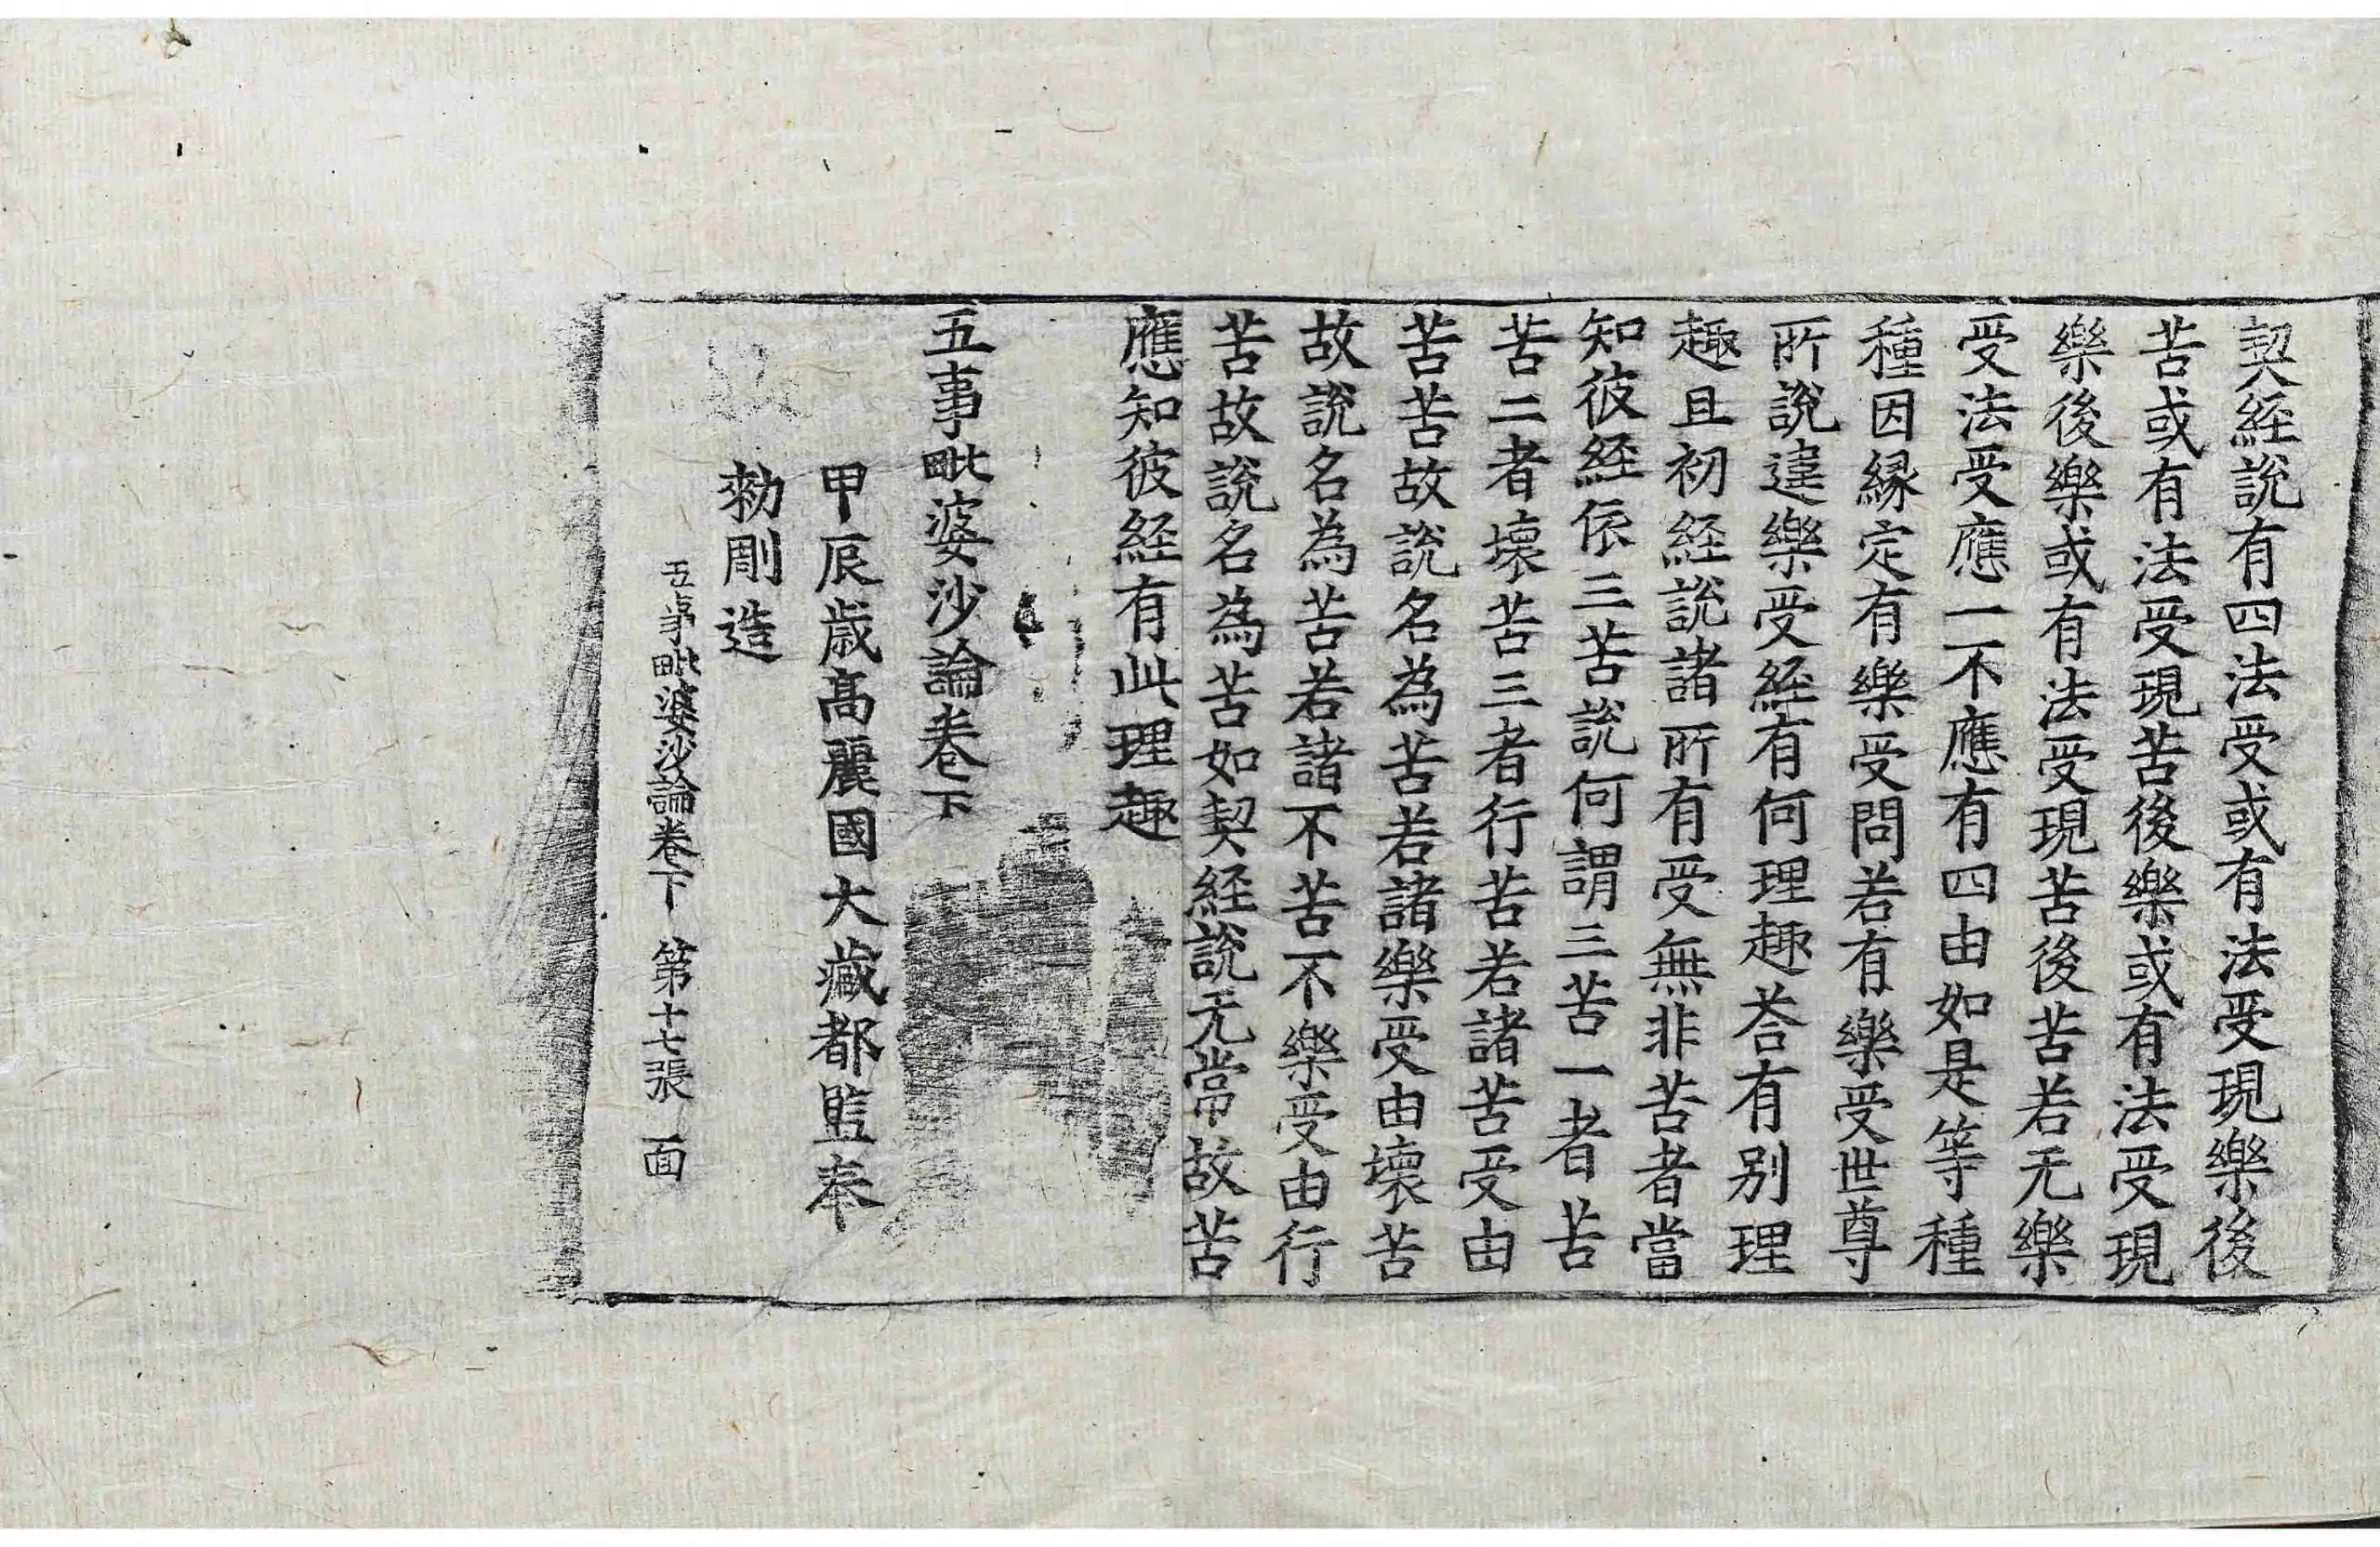 契經說有四法受或有法受現樂後
苦或有法受現苦後樂或有法受現
樂後樂或有法受現苦後苦若无樂
受法受應一不應有四由如是等種
種因緣定有樂受問若有樂受世尊
所說違樂受經有何理趣荅有別理
趣且初經說諸所有受無非苦者當
知彼經依三苦說何謂三苦一者苦
苦二者壞苦三者行苦若諸苦受由
苦苦故說名為苦若諸樂受由壞苦
故說名為苦若諸不苦不樂受由行
苦故說名為苦如契經說无常故苦
應知彼經有此理趣
五事毗婆沙論卷下
甲辰歲高麗國大藏都監奉
勑彫造
五事毗婆沙論卷下 第十七張 面